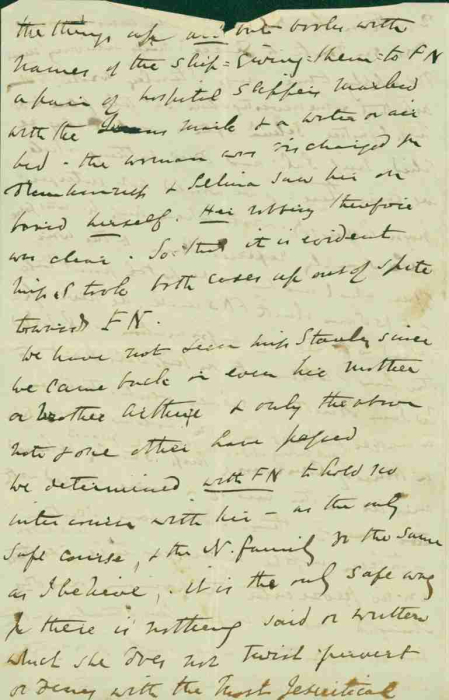 the things up and out books with
names of the ship = giving = them = to FN
a pair of hospital slippers marked
with the mark & a water or air
bed - the woman was discharged for
drunkenness & Selina saw her on
board herself. Her robbing therefore
was clear. So that it is evident
Miss S took both cases up out of spite
towards FN.
We have not seen Miss Stanley since
we came back or even her mother
or brother Arthur & only the above
note & one other have passed
We determined with FN to hold no
intercourse with her - as the only
safe course, & the N. family do the same
as I believe, it is the only safe way
for there is nothing said or written
which she does not twist pervert
or deny with the most Jesuitical